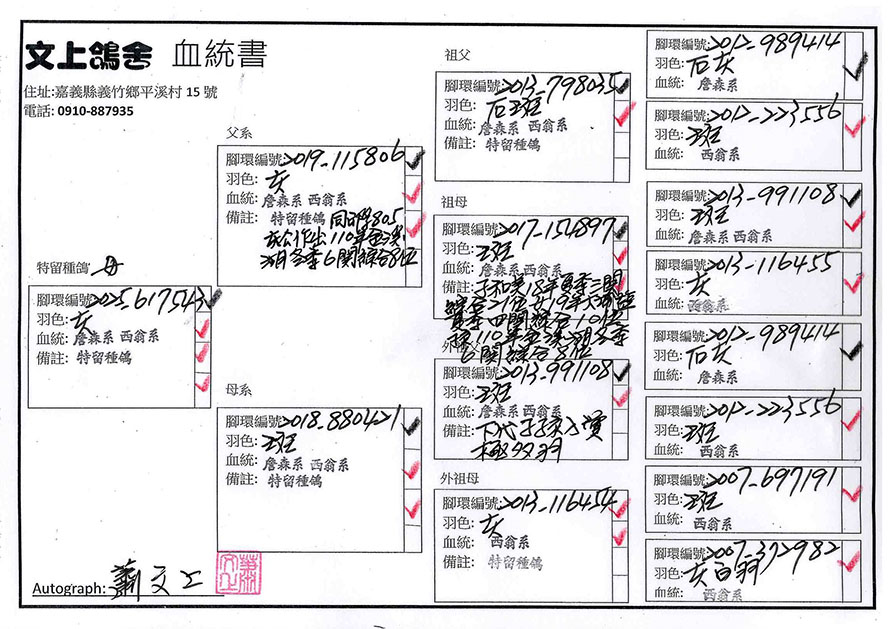 文上鴿舍 血統書
住址:嘉義縣義竹鄉平溪村 15 號
電話: 0910-887935
特留種鴿 母
腳環編號:2025-617543
羽色:灰
血統: 詹森系 西翁系
備註: 特留種鴿
父系
腳環編號:2019-115806
羽色: 灰
血統: 詹森系 西翁系
備註: 特留種鴿 同孵805
灰公作出110年金溪
湖冬季6關綜合8位
母系
腳環編號:2018-880421
羽色: 斑
血統: 詹森系 西翁系
備註: 特留種鴿
祖父
腳環編號:2013-798035
羽色: 石斑
血統: 詹森系 西翁系
備註: 特留種鴿
祖母
腳環編號:2017-154897
羽色: 斑
血統: 詹森系 西翁系
備註: 18年夏季三關
綜合21位 19年
季四關綜合10位
孫110年金溪湖冬季
6關綜合8位
腳環編號:2013-991108
羽色: 斑
血統: 詹森系 西翁系
備註: 下代子孫入賞
極多羽
外祖母
腳環編號:2013-116454
羽色: 灰
血統: 西翁系
備註: 特留種鴿
腳環編號:2012-989414
羽色: 石灰
血統: 詹森系
腳環編號:2012-223556
羽色: 斑
血統: 西翁系
腳環編號:2013-991108
羽色: 斑
血統: 詹森系 西翁系
腳環編號:2013-116455
羽色: 灰
血統: 西翁系
腳環編號:2012-989414
羽色: 石灰
血統: 詹森系
腳環編號:2012-223556
羽色: 斑
血統: 西翁系
腳環編號:2007-697191
羽色: 斑
血統: 西翁系
腳環編號:2007-372982
羽色: 灰白翁
血統: 西翁系
Autograph: 蕭文上